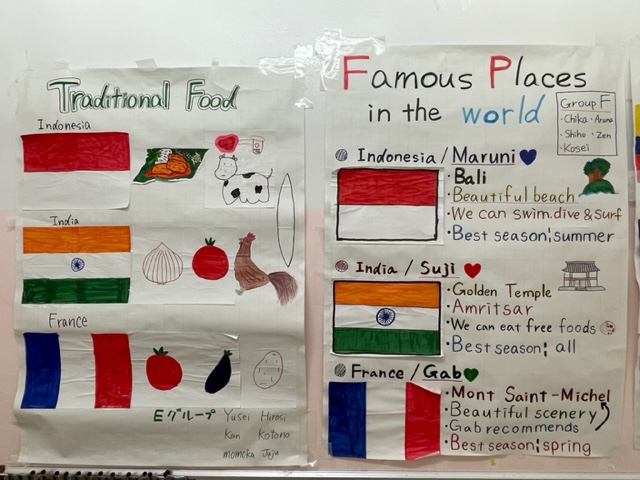 Traditional Food
Indonesia
India
France
Eグループ Yusei Hirosi
Kan Kotono
momoka Jeju
Famous Places
in the world
Group F
・Chika ・Aruna
・Shiho ・Zen
・Kosei
Indonesia / Maruni
・Bali
・Beautiful beach
・We can swim.dive & surf
・Best season: summer
India / Suji
・Golden Temple
・Amritsar
・We can eat free foods
・Best season: all
France / Gab
・Mont Saint-Michel
・Beautiful scenery
・Gab recommends
・Best season: spring